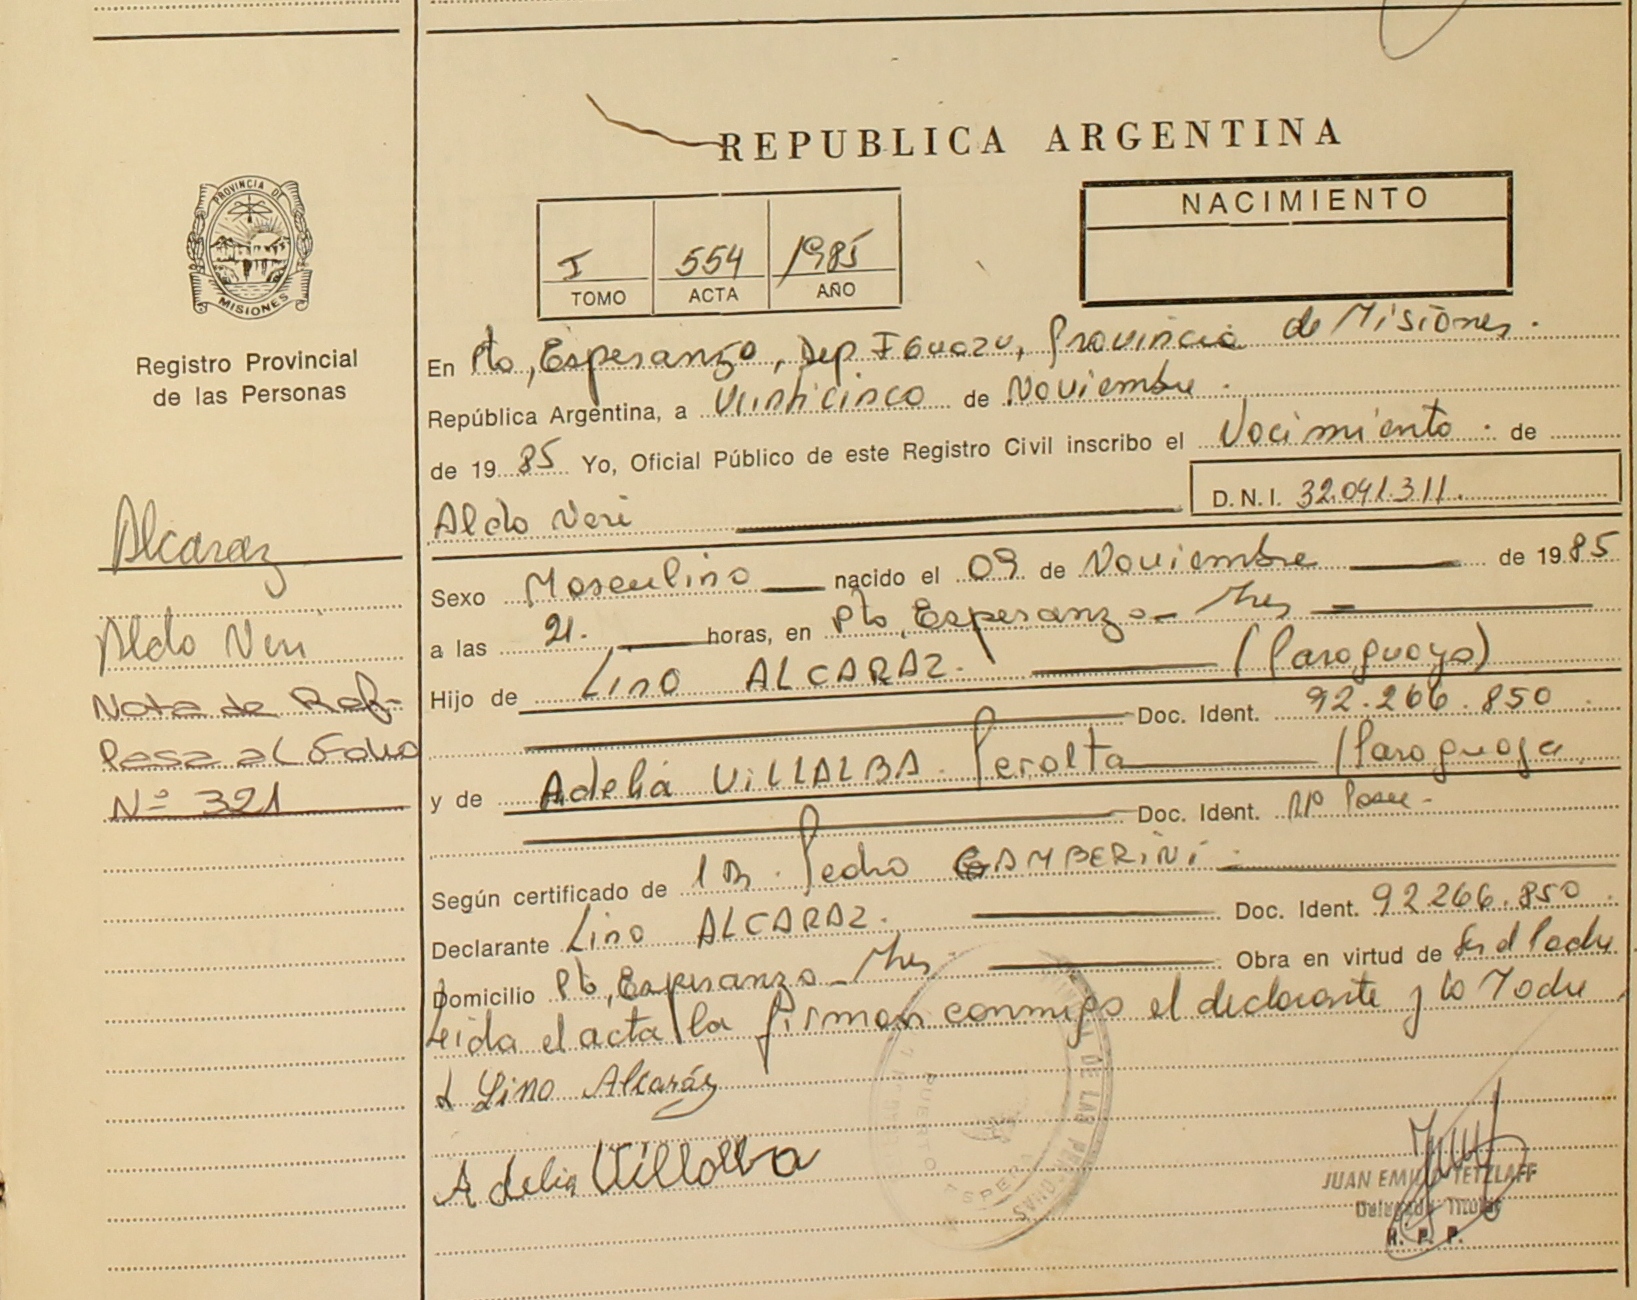 REPUBLICA ARGENTINA
PROVINCIA DE
MISIONES
Registro Provincial
de las Personas
I 554 1985
TOMO ACTA AÑO
NACIMIENTO
En Pto, Esperanza, Dep Iguazu, Provincia de Misiones.
República Argentina, a Veinticinco de Noviembre.
de 1985 Yo, Oficial Público de este Registro Civil inscribo el Nacimiento. de
Aldo Neri D.N.I. 32.041.311.
Sexo Masculino nacido el 09 de Noviembre de 1985
a las 21. horas, en Pto, Esperanza - Mnes
Hijo de Lino ALCARAZ. (Paraguayo)
Doc. Ident. 92.266.850
y de Adelia VILLALBA Peralta (Paraguaya
Doc. Ident. No Posee.
Según certificado de Pedro GAMBERINI
Declarante Lino ALCARAZ. Doc. Ident. 92266.850
Domicilio Pto, Esperanza - Mnes Obra en virtud de Ser el Padre
Leida el acta la firman conmigo el declarante y la Madre
Lino Alcaráz
Adelia Villalba
JUAN EMILIO TETZLAFF
Delegado Titular
R. P. P.
Alcaraz
Aldo Neri
Nota de Ref-
Pasa al Folio
Nº 321
DE LAS PERSONAS
PUERTO ESPERANZA